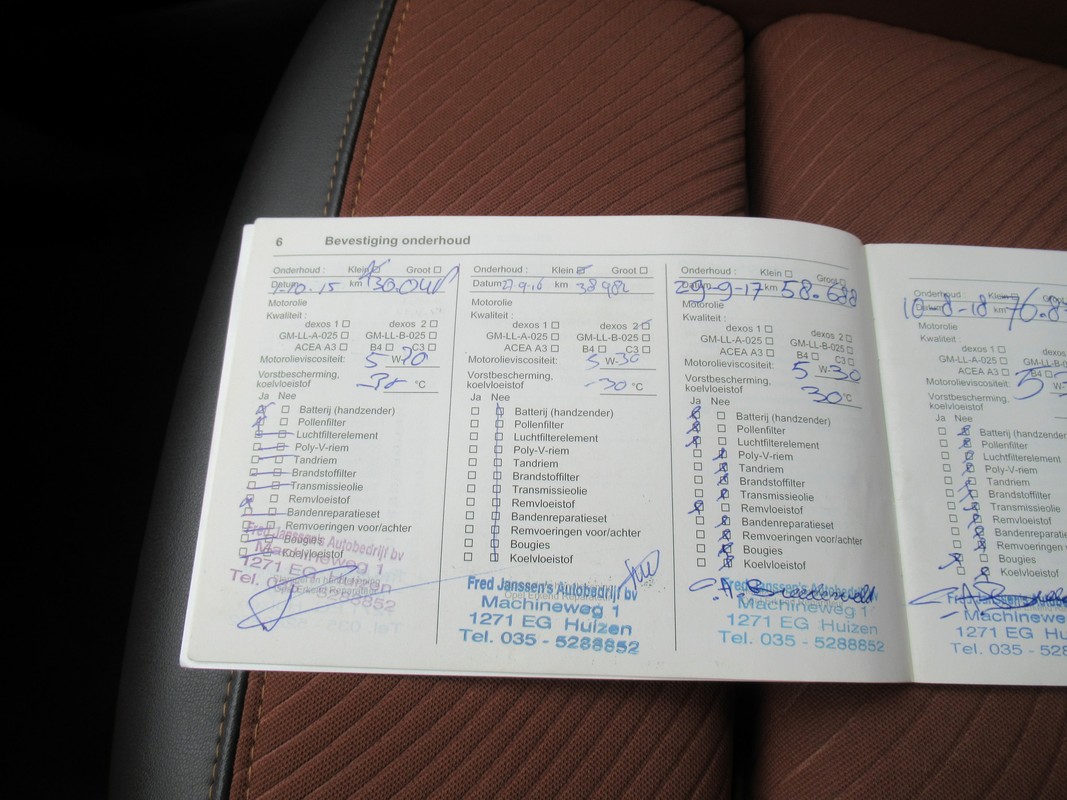 6 Bevestiging onderhoud
Onderhoud : Klein Groot
Datum 1-10.15 km
Motorolie
Kwaliteit :
dexos 1 dexos 2
GM-LL-A-025 GM-LL-B-025
ACEA A3 B4 C3
Motorolieviscositeit: 5 W-
Vorstbescherming,
koelvloeistof °C
Ja Nee
Batterij (handzender)
Pollenfilter
Luchtfilterelement
Poly-V-riem
Tandriem
Brandstoffilter
Transmissieolie
Remvloeistof
Bandenreparatieset
Remvoeringen voor/achter
Bougies
Koelvloeistof
Fred Janssen's Autobedrijf bv
Machineweg 1
1271 EG Huizen
Tel. 035 - 5288852
Onderhoud : Klein Groot
Datum km
Motorolie
Kwaliteit :
dexos 1 dexos 2
GM-LL-A-025 GM-LL-B-025
ACEA A3 B4 C3
Motorolieviscositeit: 5 W-30
Vorstbescherming,
koelvloeistof -30 °C
Ja Nee
Batterij (handzender)
Pollenfilter
Luchtfilterelement
Poly-V-riem
Tandriem
Brandstoffilter
Transmissieolie
Remvloeistof
Bandenreparatieset
Remvoeringen voor/achter
Bougies
Koelvloeistof
Fred Janssen's Autobedrijf bv
Machineweg 1
1271 EG Huizen
Tel. 035 - 5288852
Onderhoud : Klein Groot
Datum 29-9-17 km 58.688
Motorolie
Kwaliteit :
dexos 1 dexos 2
GM-LL-A-025 GM-LL-B-025
ACEA A3 B4 C3
Motorolieviscositeit: 5 W-30
Vorstbescherming,
koelvloeistof 30 °C
Ja Nee
Batterij (handzender)
Pollenfilter
Luchtfilterelement
Poly-V-riem
Tandriem
Brandstoffilter
Transmissieolie
Remvloeistof
Bandenreparatieset
Remvoeringen voor/achter
Bougies
Koelvloeistof
Fred Janssen's Autobedrijf bv
Machineweg 1
1271 EG Huizen
Tel. 035 - 5288852
Onderhoud : Klein
Datum 10-8-18 km 76.8
Motorolie
Kwaliteit :
dexos 1 dexos
GM-LL-A-025 GM-LL
ACEA A3 B4
Motorolieviscositeit: 5
Vorstbescherming,
koelvloeistof
Ja Nee
Batterij (handzender
Pollenfilter
Luchtfilterelement
Poly-V-riem
Tandriem
Brandstoffilter
Transmissieolie
Remvloeistof
Bandenreparatieset
Remvoeringen v
Bougies
Koelvloeistof
Fred Janssen's Autobe
Machineweg
1271 EG Hu
Tel. 035 - 528